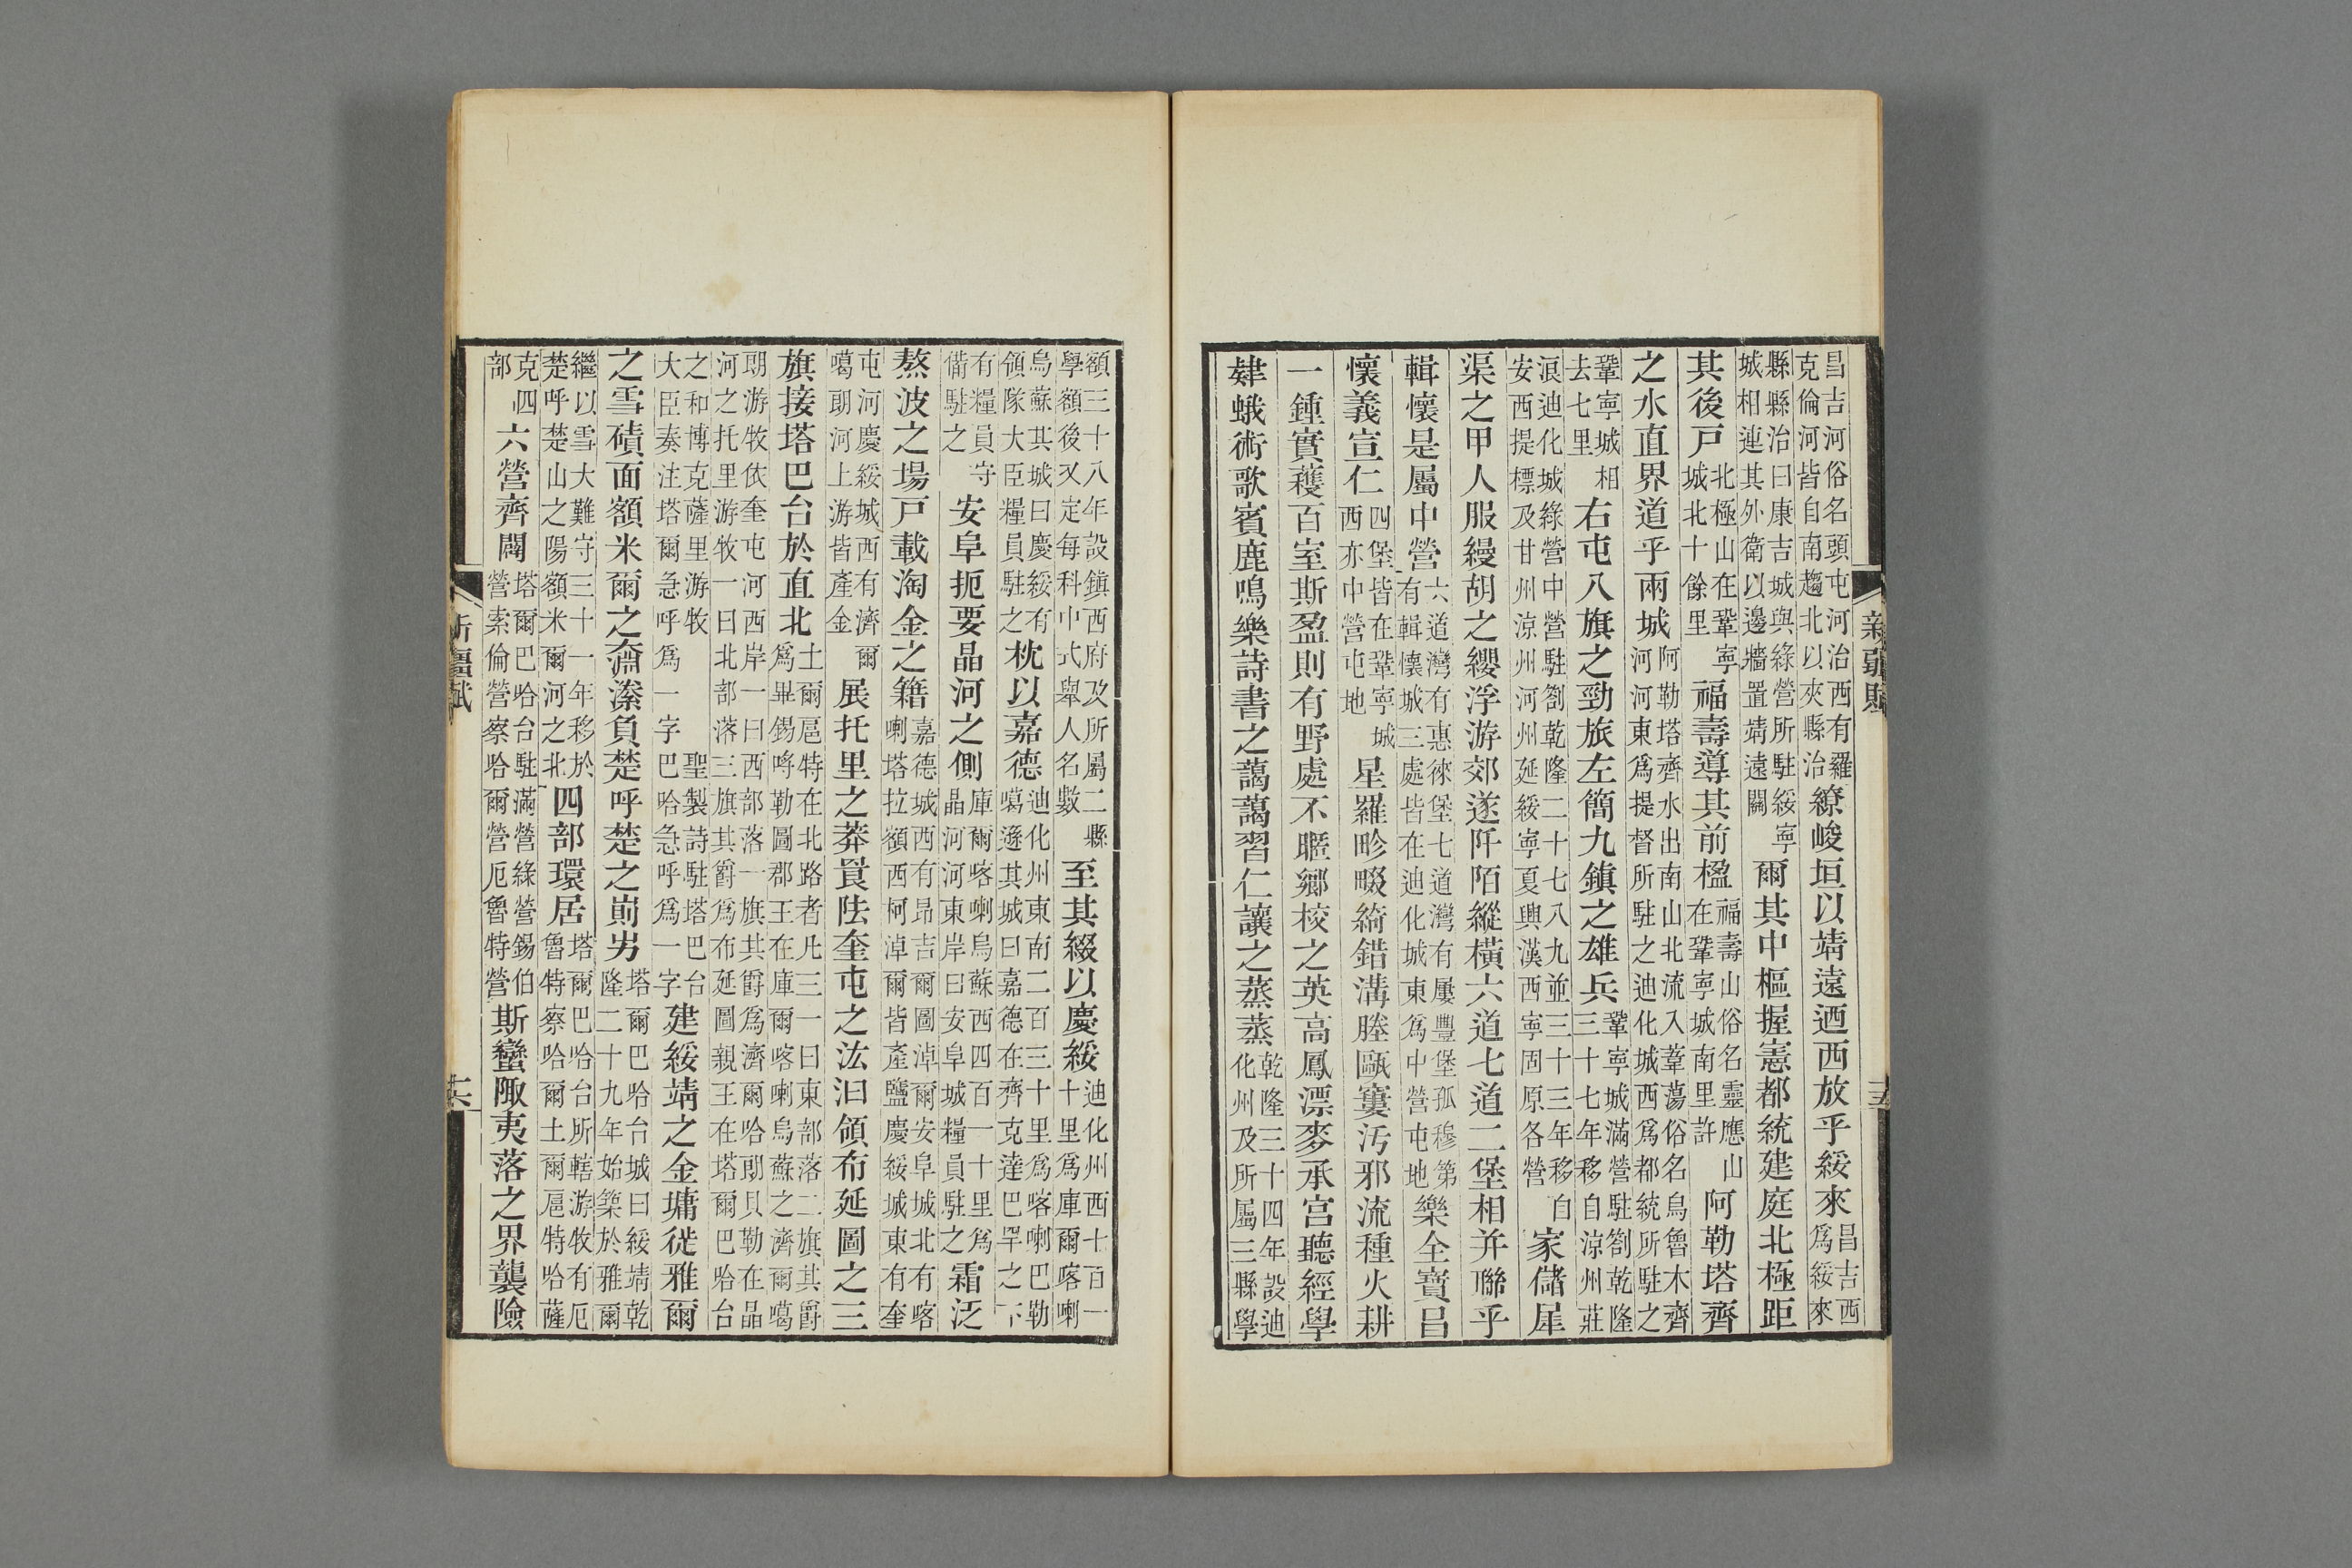 昌吉河俗名頭屯河治西有羅
克倫河皆自南趨北以夾縣治
繚峻垣以靖遠迺西放乎綏來
昌吉西
爲綏來
縣縣治曰康吉城與綠營所駐綏寧
城相連其外衛以邊牆置靖遠關
爾其中樞握憲都統建庭北極距
其後戸
北極山在鞏寧
城北十餘里
福壽導其前楹
福壽山俗名靈應山
在鞏寧城南里許
阿勒塔齊
之水直界道乎兩城
阿勒塔齊水出南山北流入葦蕩俗名烏魯木齊
河河東爲提督所駐之迪化城西爲都統所駐之
鞏寧城相
去七里
右屯八旗之勁旅左簡九鎮之雄兵
鞏寧城滿營駐劄乾隆
三十七年移自涼州莊
浪迪化城綠營中營駐劄乾隆二十七八九並三十三年移自
安西提標及甘州涼州河州延綏寧夏興漢西寧固原各營
家儲犀
渠之甲人服縵胡之纓浮游郊遂阡陌縱橫六道七道二堡相并聯乎
輯懷是屬中營
六道灣有惠徠堡七道灣有屢豐堡孤穆第
有輯懷城三處皆在迪化城東爲中營屯地
樂全寶昌
懷義宣仁
四堡皆在鞏寧城
西亦中營屯地
星羅畛畷綺錯溝塍甌窶汚邪流種火耕
一鍾實穫百室斯盈則有野處不暱鄉校之英高鳳漂麥承宮聽經學
肄蛾術歌賓鹿鳴樂詩書之藹藹習仁讓之蒸蒸
乾隆三十四年設迪
化州及所屬三縣學
新疆賦
十五
額三十八年設鎮西府及所屬二縣
學額後又定每科中式舉人名數
至其綴以慶綏
迪化州西七百一
十里爲庫爾喀喇
烏蘇其城曰慶綏有
領隊大臣糧員駐之
枕以嘉德
迪化州東南二百三十里爲喀喇巴勒
噶遜其城曰嘉德在齊克達巴罕之下
有糧員守
備駐之
安阜扼要晶河之側
庫爾喀喇烏蘇西四百一十里爲
晶河河東岸曰安阜城糧員駐之
霜泛
熬波之場戸載淘金之籍
嘉德城西有昂吉爾圖淖爾安阜城北有喀
喇塔拉額西柯淖爾皆產鹽慶綏城東有奎
屯河慶綏城西有濟爾
噶朗河上游皆產金
展托里之莽買阹奎屯之汯汩領布延圖之三
旗接塔巴台於直北
土爾扈特在北路者凡三一曰東部落二旗其爵
爲畢錫呼勒圖郡王在庫爾喀喇烏蘇之濟爾噶
朗游牧依奎屯河西岸一曰西部落一旗其爵爲濟爾哈朗貝勒在晶
河之托里游牧一曰北部落三旗其爵爲布延圖親王在塔爾巴哈台
之和博克薩里游牧 聖製詩駐塔巴台
大臣奏注塔爾急呼爲一字巴哈急呼爲一字
建綏靖之金墉徙雅爾
之雪磧面額米爾之奫潫負楚呼楚之崱屴
塔爾巴哈台城曰綏靖乾
隆二十九年始築於雅爾
繼以雪大難守三十一年移於
楚呼楚山之陽額米爾河之北
四部環居
塔爾巴哈台所轄游牧有厄
魯特察哈爾土爾扈特哈薩
克四
部
六營齊闢
塔爾巴哈台駐滿營綠營錫伯
營索倫營察哈爾營厄魯特營
斯蠻陬夷落之界襲險
新疆賦
十六